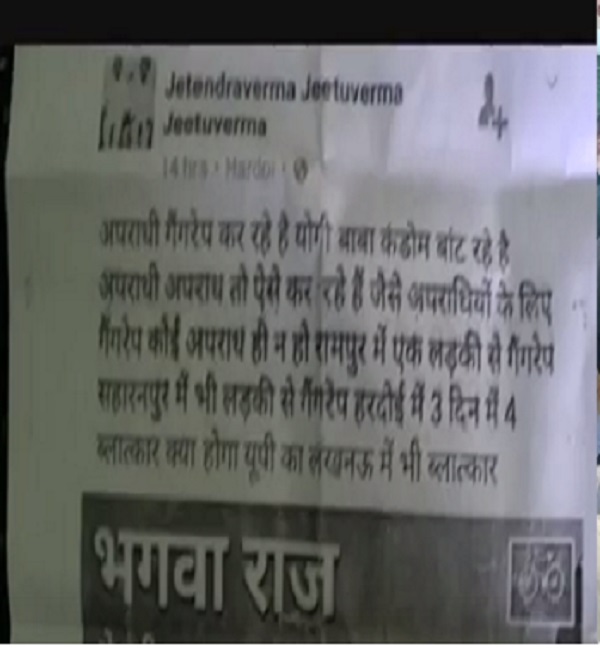 Jetendraverma Jeetuverma
Jeetuverma
14 hrs · Hardoi ·
अपराधी गैंगरेप कर रहे है योगी बाबा कंडोम बांट रहे है
अपराधी अपराध तो ऐसे कर रहे हैं जैसे अपराधियों के लिए
गैंगरेप कोई अपराध ही न हो रामपुर में एक लड़की से गैंगरेप
सहारनपुर में भी लड़की से गैंगरेप हरदोई में 3 दिन में 4
ब्लात्कार क्या होगा यूपी का लखनऊ में भी ब्लात्कार
भगवा राज